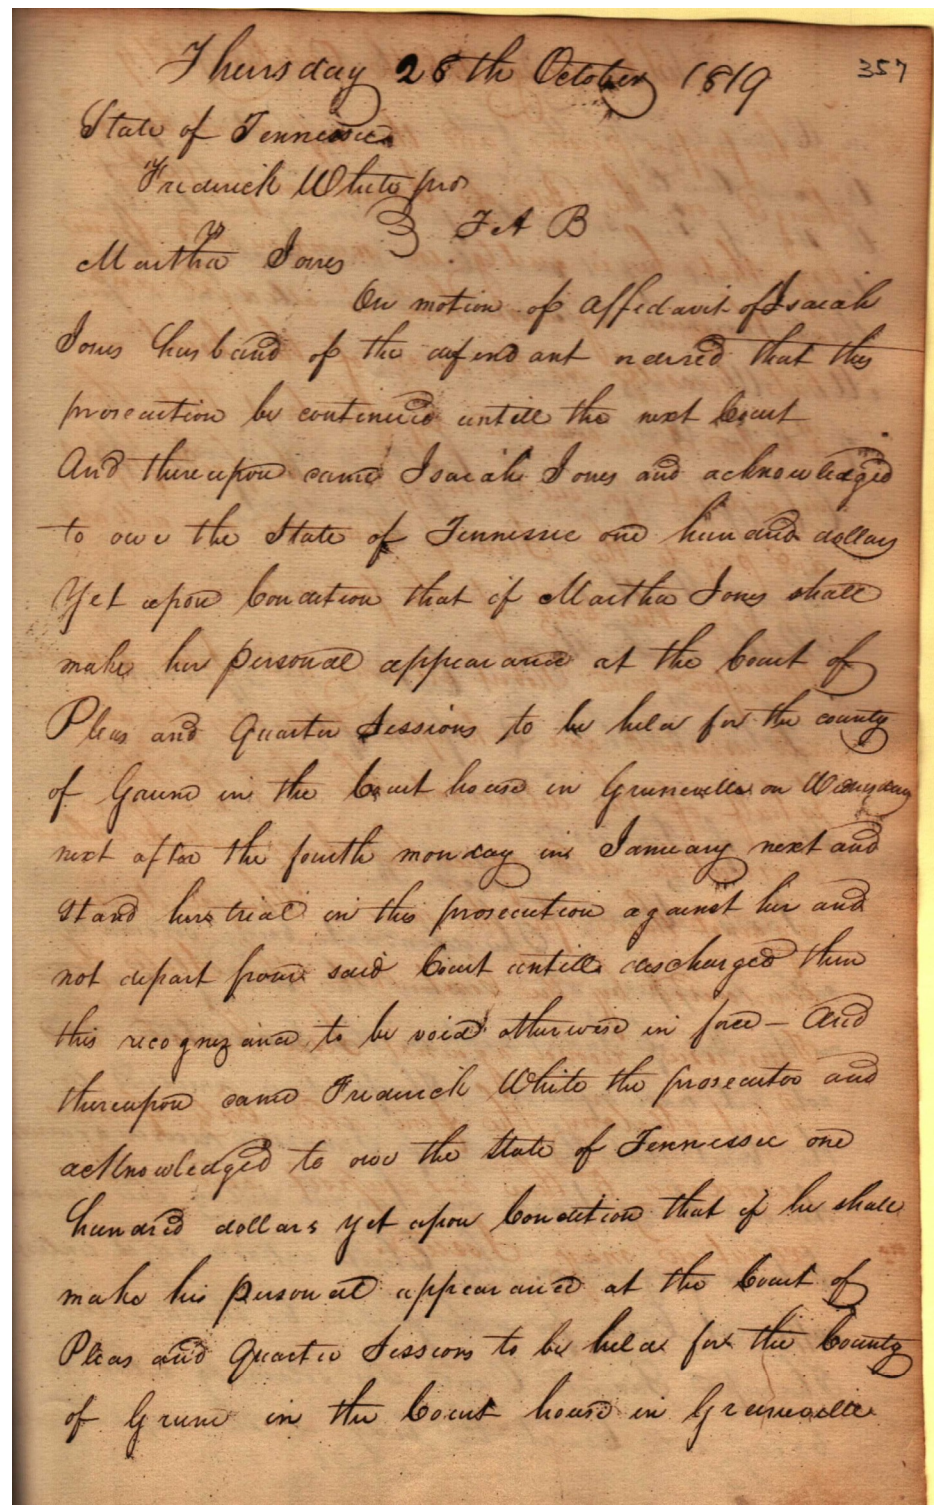 Thursday 28th October 1819
357
State of Tennessee
Frederick White pros
vs
} T A B
Martha Jones
On motion of affidavit of Isaiah
Jones husband of the defendant ordered that this
prosecution be continued untill the next Court
And thereupon came Isaiah Jones and acknowledged
to owe the State of Tennessee one hundred dollars
Yet upon Condition that if Martha Jones shall
make her personal appearance at the Court of
Pleas and Quarter Sessions to be held for the county
of Greene in the Court house in Greeneville on Wednesday
next after the fourth monday in January next and
stand her trial in this prosecution against her and
not depart from said Court untill discharged then
this recognizance to be void otherwise in force — And
thereupon came Frederick White the prosecutor and
acknowledged to owe the State of Tennessee one
hundred dollars yet upon Condition that if he shall
make his personal appearance at the Court of
Pleas and Quarter Sessions to be held for the County
of Greene in the Court house in Greeneville